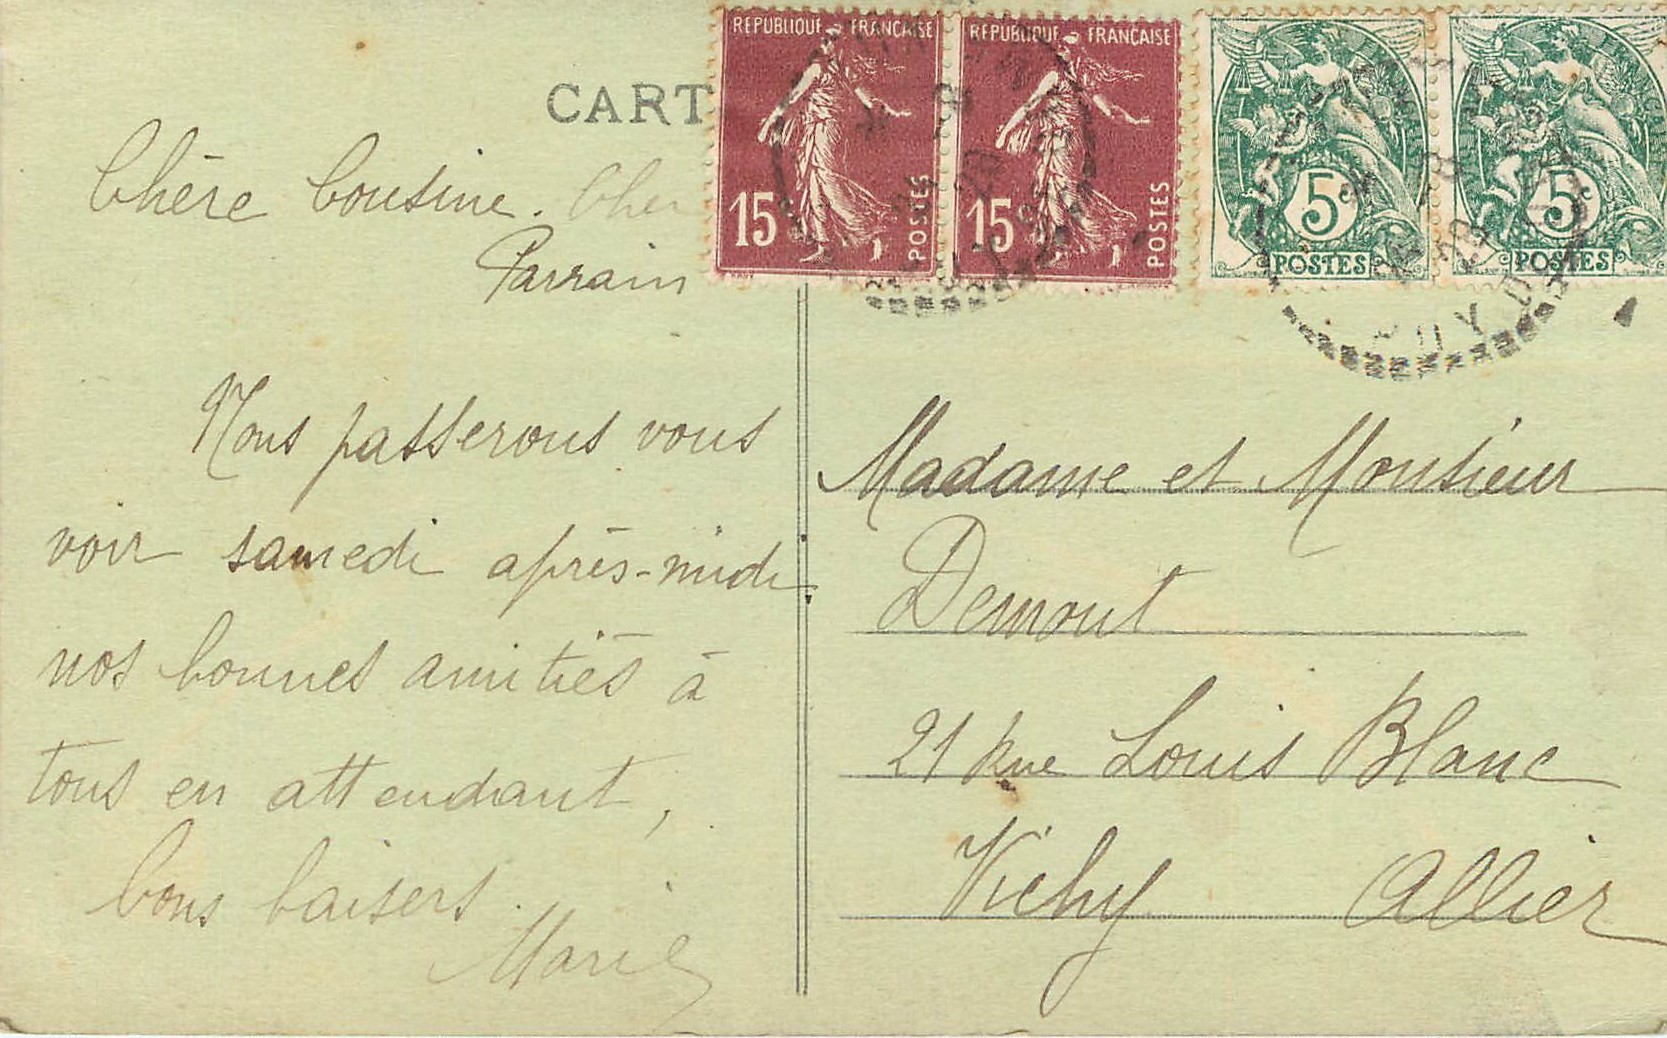 CART
REPUBLIQUE FRANCAISE
15
POSTES
REPUBLIQUE FRANCAISE
15
POSTES
5c
POSTES
5c
POSTES
Chère Cousine. Cher
Parrain
Nous passerons vous
voir samedi après-midi
nos bonnes amitiés à
tous en attendant,
bons baisers.
Marie
Madame et Monsieur
Demont
21 Rue Louis Blanc
Vichy Allier